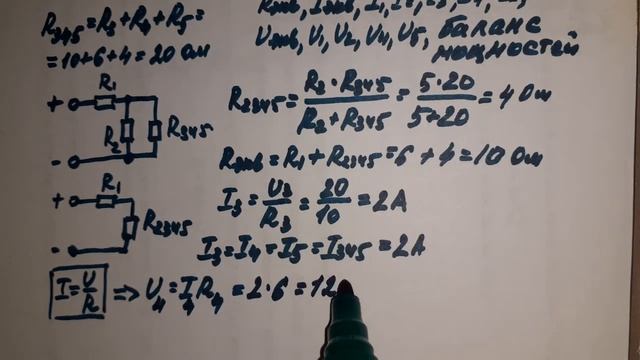 R345=R3+R4+R5=
=10+6+4=20 Ом
Uэкв, U1, U2, U4, U5, баланс
мощностей
+ R1
R2 R345
-
R2345=R2·R345/R2+R345=5·20/5+20=4 Ом
Rэкв=R1+R2345=6+4=10 Ом
+ R1
R2345
-
I3=U3/R3=20/10=2A
I3=I4=I5=I345=2A
I=U/R ⇒ U4=I4R4=2·6=12